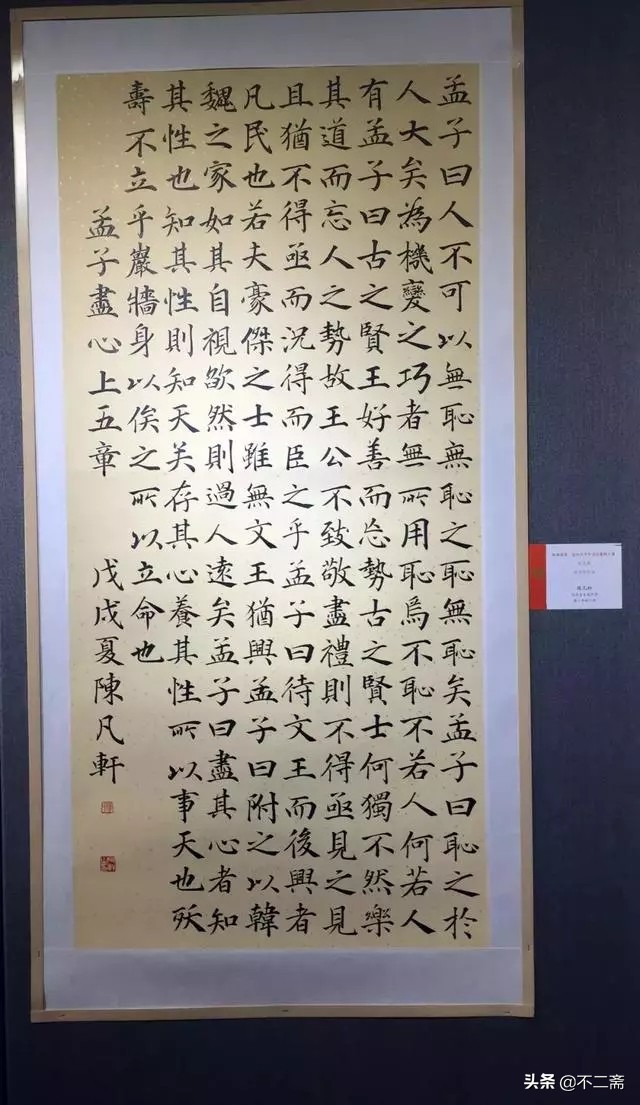 孟子曰人不可以無恥無恥之恥無恥矣孟子曰恥之於
人大矣為機變之巧者無所用恥焉不恥不若人何若人
有孟子曰古之賢王好善而忘勢古之賢士何獨不然樂
其道而忘人之勢故王公不致敬盡禮則不得亟見之見
且猶不得亟而況得而臣之乎孟子曰待文王而後興者
凡民也若夫豪傑之士雖無文王猶興孟子曰附之以韓
魏之家如其自視欿然則過人遠矣孟子曰盡其心者知
其性也知其性則知天矣存其心養其性所以事天也殀
壽不立乎巖牆身以俟之所以立命也
孟子盡心上五章 戊戌夏陳凡軒
头条@不二斋